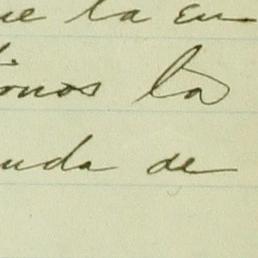 ue la en
ionos la
uda de